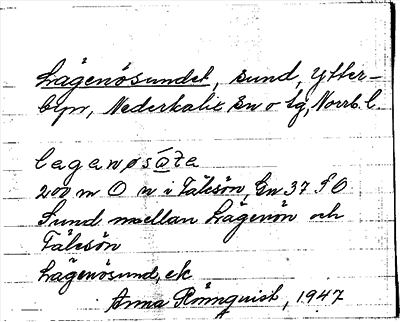 Lågenösundet, sund, Ytter-
byn, Nederkalix sn o tg, Norrb. l.
200 m O n i Tälcsön, Gn 37 SO
Sund mellan Lågenön och
Tälcsön
Lågenösund, ek
Anna Rönnquist, 1947